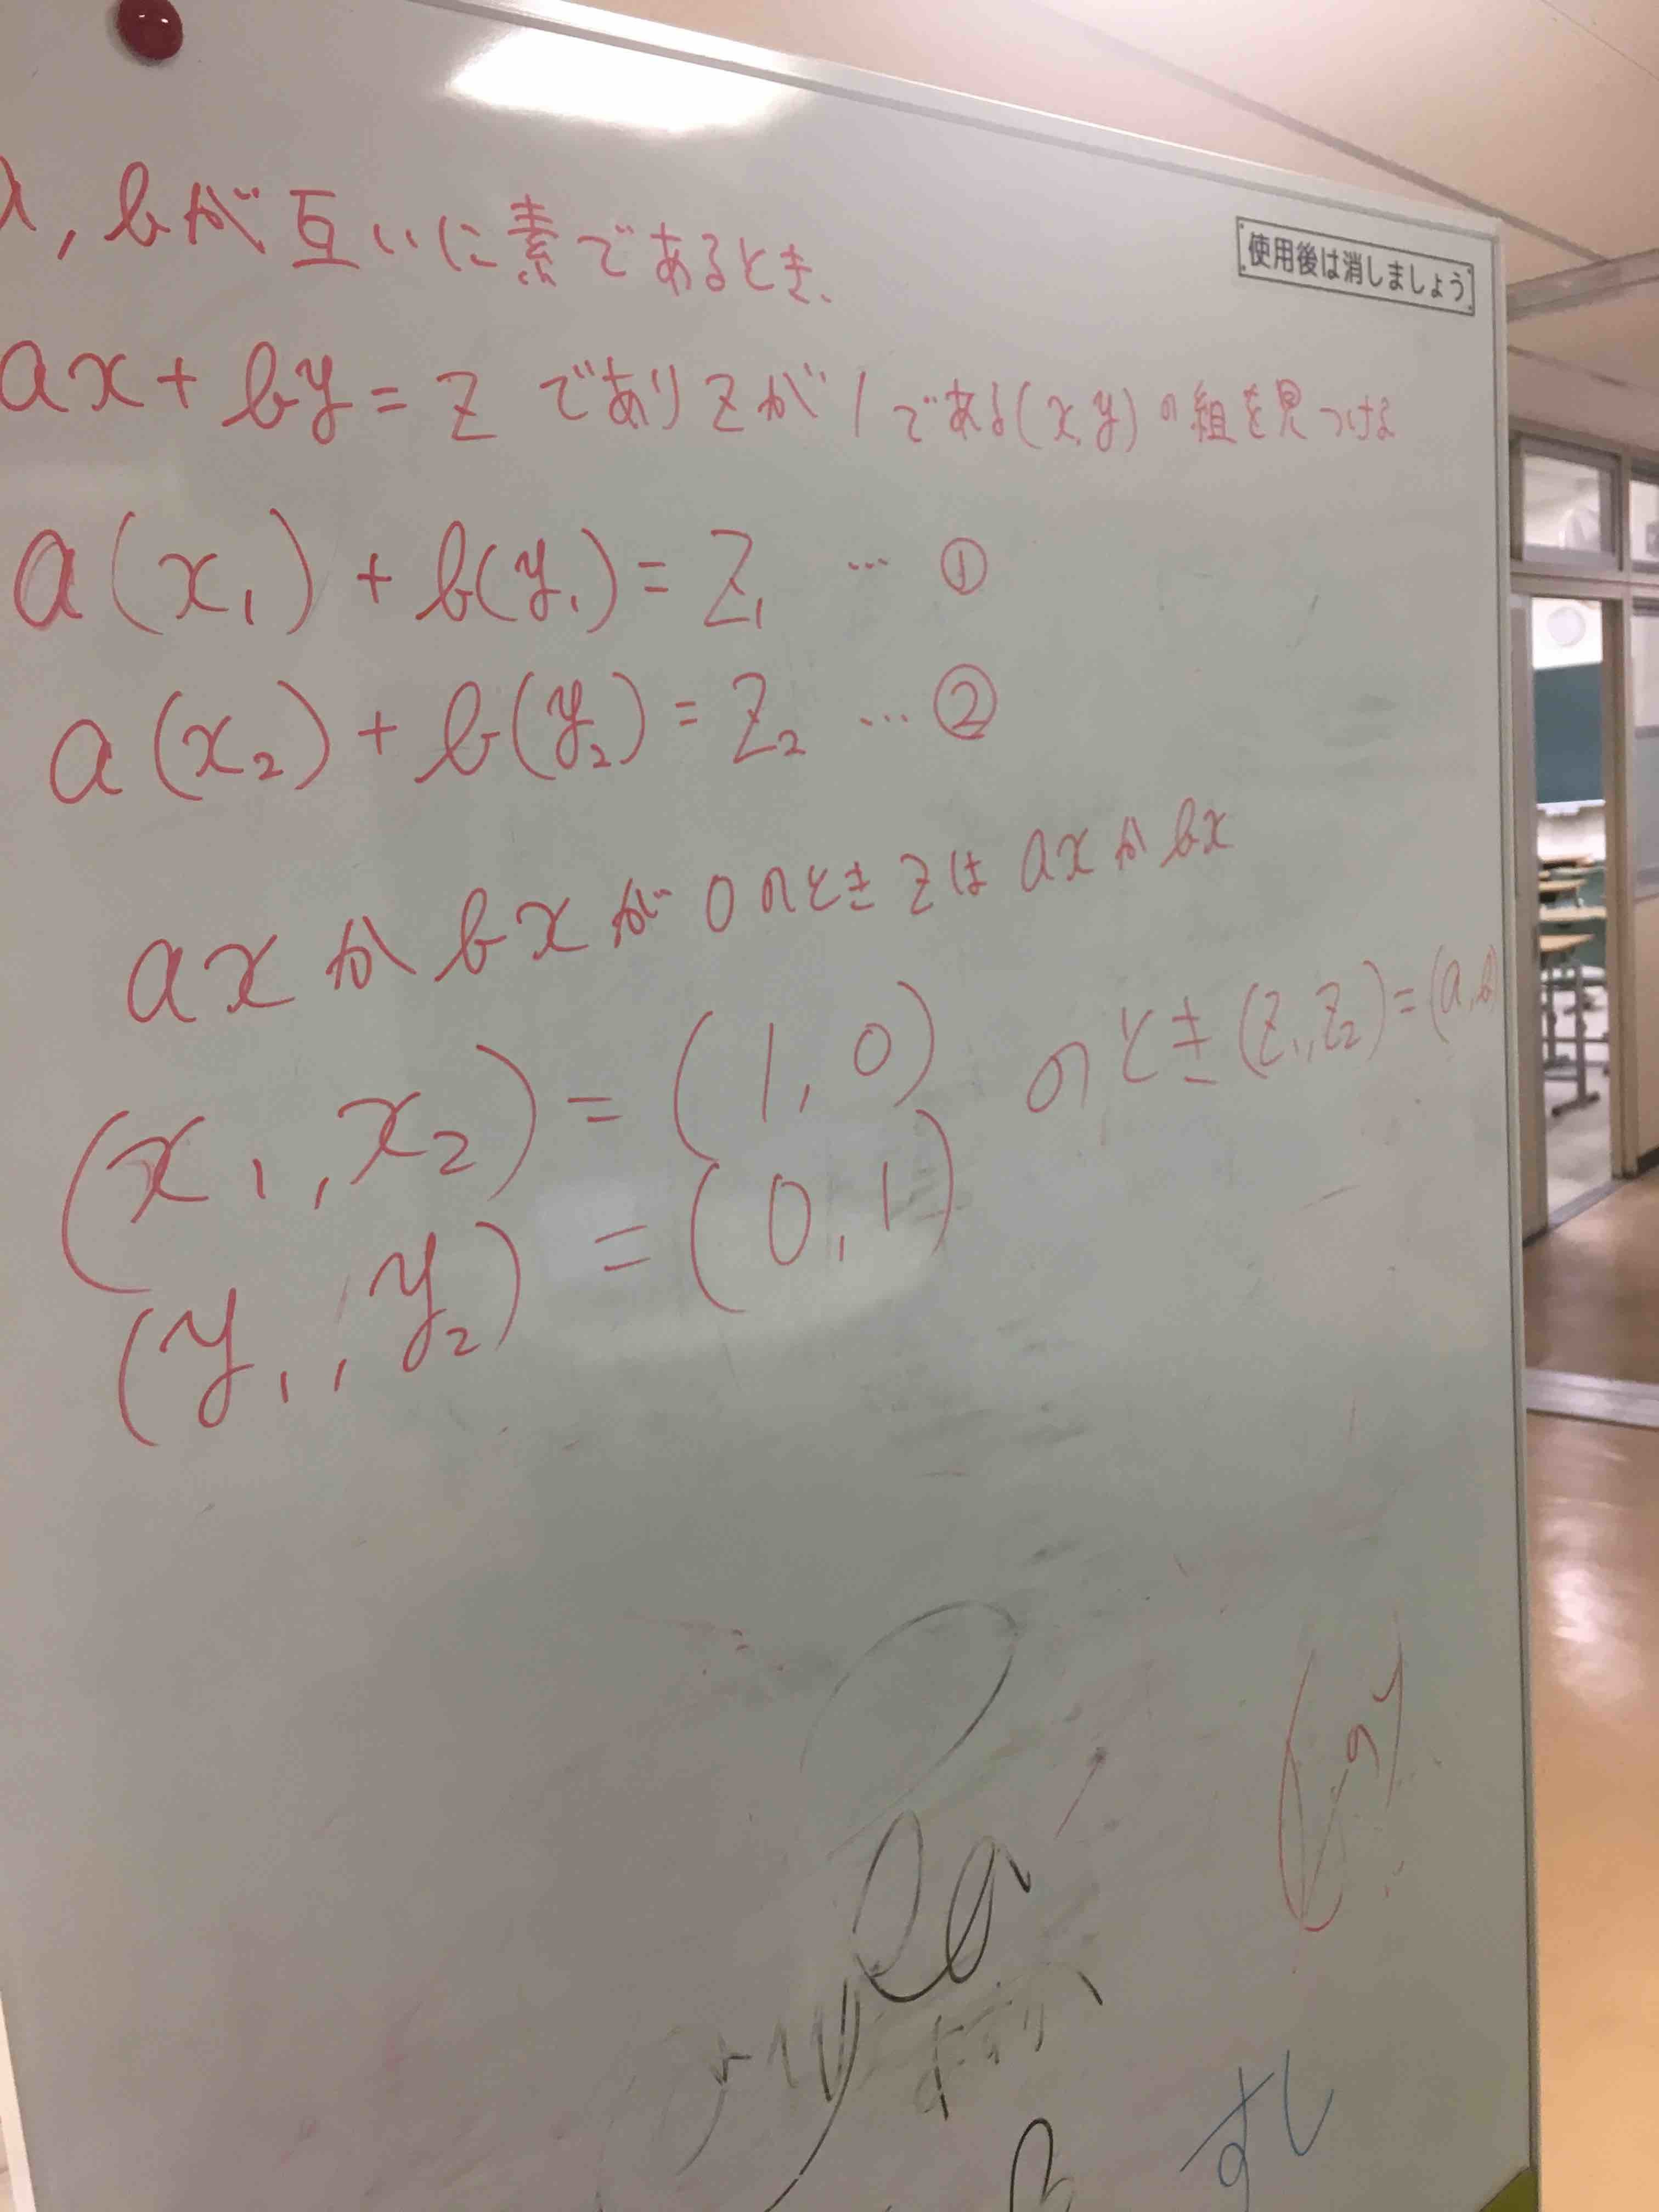 使用後は消しましょう
a, bが互いに素であるとき、
ax + by = z であり zが1である(x,y)の組を見つける
a(x₁) + b(y₁) = Z₁ … ①
a(x₂) + b(y₂) = Z₂ … ②
axかbxが0のときzはaxかbx
(x₁, x₂) = (1, 0) のとき(Z₁, Z₂) = (a, b)
(y₁, y₂) = (0, 1)
すし